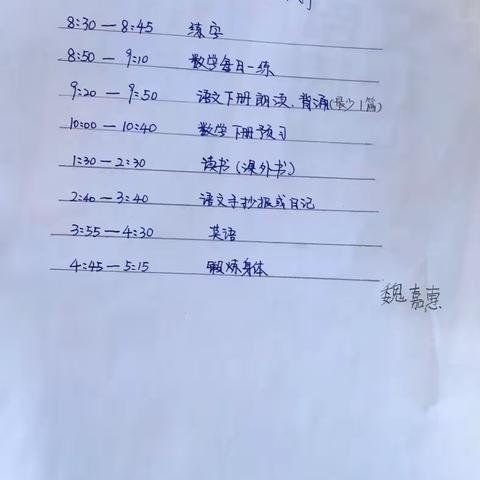 8:30 — 8:45 练字
8:50 — 9:10 数学每日一练
9:20 — 9:50 语文下册朗读、背诵(最少1篇)
10:00 — 10:40 数学下册预习
1:30 — 2:30 读书(课外书)
2:40 — 3:40 语文手抄报或日记
3:55 — 4:30 英语
4:45 — 5:15 锻炼身体
魏嘉惠